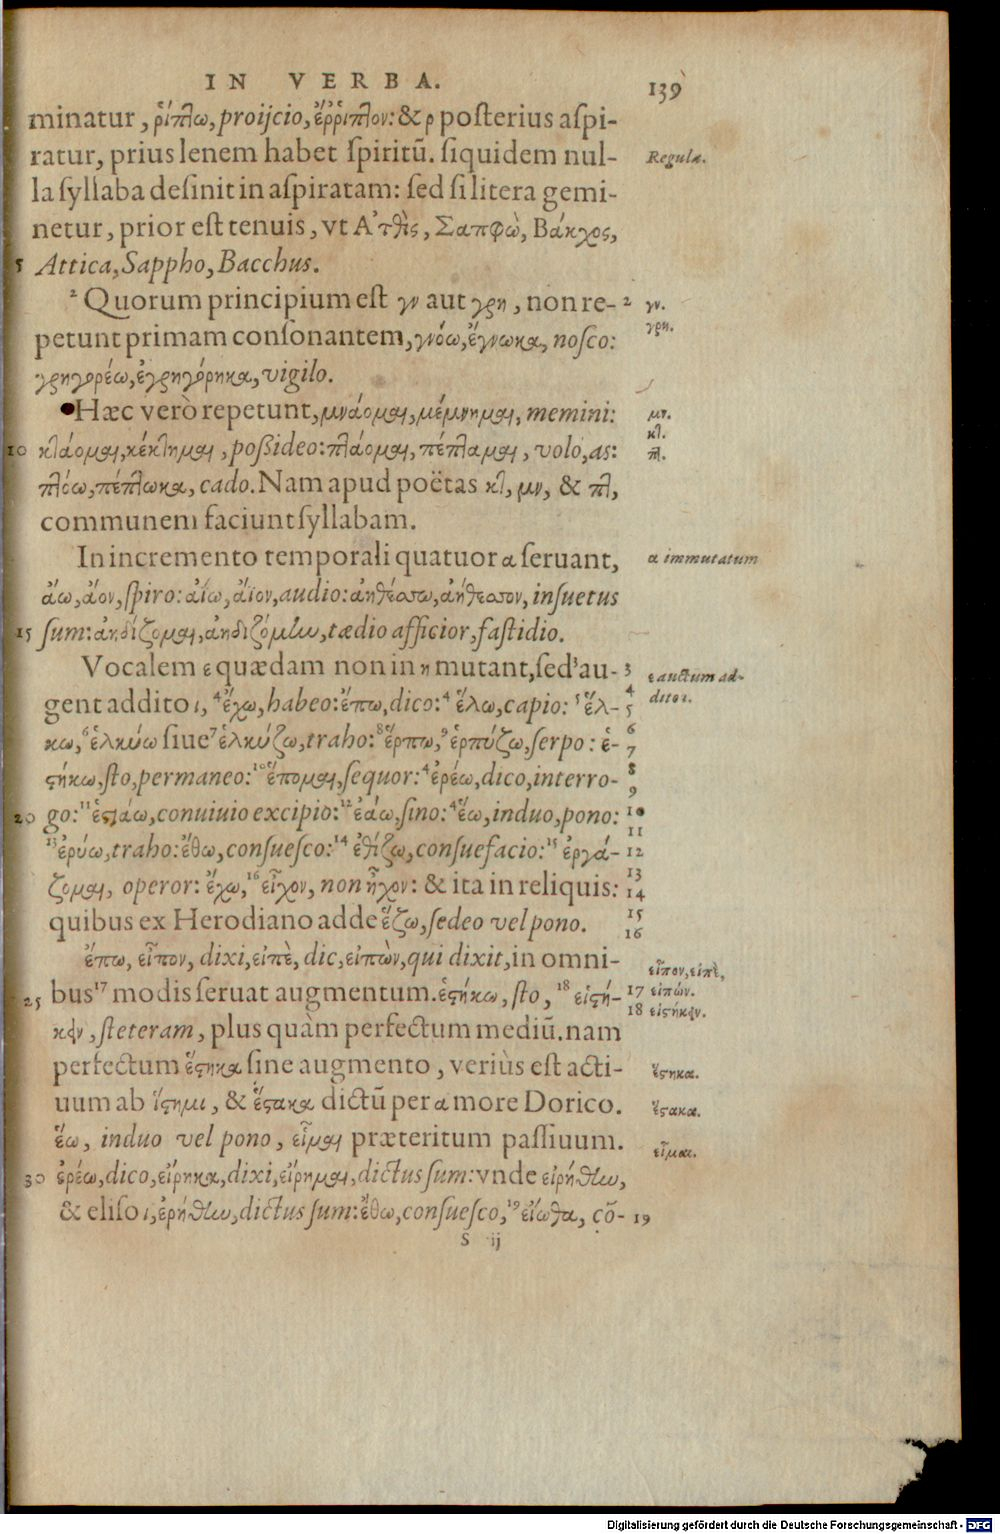 IN VERBA. 139
minatur, ῥίπτω, proijcio, ἔῤῥιπτον: & ρ posterius aspi-
ratur, prius lenem habet spiritū. siquidem nul- Regulæ.
la syllaba desinit in aspiratam: sed si litera gemi-
netur, prior est tenuis, vt Ἀτθὶς, Σαπφὼ, Βάκχος,
5 Attica, Sappho, Bacchus.
² Quorum principium est γν aut γρη, non re- 2 γν.
petunt primam consonantem, γνόω, ἔγνωκα, nosco: γρη.
γρηγορέω, ἐγρηγόρηκα, vigilo.
Hæc verò repetunt, μνάομαι, μέμνημαι, memini: μν.
10 κτάομαι, κέκτημαι, possideo: πτάομαι, πέπταμαι, volo, as: κτ. πτ.
πτόω, πέπτωκα, cado. Nam apud poëtas κτ, μν, & πτ,
communem faciunt syllabam.
In incremento temporali quatuor α seruant, α immutatum
ἄω, ἄον, spiro: ἀΐω, ἄϊον, audio: ἀηθέσσω, ἀήθεσσον, insuetus
15 sum: ἀηδίζομαι, ἀηδιζόμην, tædio afficior, fastidio.
Vocalem ε quædam non in η mutant, sed ³ au- 3 ε auctum ad-
gent addito ι, ⁴ ἔχω, habeo: ἔπω, dico: ⁴ ἕλω, capio: ⁵ ἕλ- 4 5 dito ι.
κω, ⁶ ἑλκύω siue ⁷ ἑλκύζω, traho: ⁸ ἕρπω, ⁹ ἑρπύζω, serpo: ἑ- 6 7
ϛήκω, sto, permaneo: ¹⁰ ἕπομαι, sequor: ⁴ ἐρέω, dico, interro- 8 9
20 go: ¹¹ ἑϛιάω, conuiuio excipio: ¹² ἐάω, sino: ⁴ ἕω, induo, pono: 10 11
¹³ ἐρύω, traho: ἔθω, consuesco: ¹⁴ ἐθίζω, consuefacio: ¹⁵ ἐργά- 12
ζομαι, operor: ἔχω, ¹⁶ εἶχον, non ἦχον: & ita in reliquis: 13 14
quibus ex Herodiano adde ἕζω, sedeo vel pono. 15 16
ἔπω, εἶπον, dixi, εἰπὲ, dic, εἰπὼν, qui dixit, in omni- εἶπον, εἰπὲ,
25 bus ¹⁷ modis seruat augmentum. ἑϛήκω, sto, ¹⁸ εἱϛή- 17 εἰπών.
κειν, steteram, plus quàm perfectum mediū. nam 18 εἱϛήκειν.
perfectum ἕϛηκα sine augmento, veriùs est acti- ἕϛηκα.
uum ab ἵϛημι, & ἕϛακα dictū per α more Dorico. ἕϛακα.
ἕω, induo vel pono, εἷμαι præteritum passiuum. εἷμαι.
30 ἐρέω, dico, εἴρηκα, dixi, εἴρημαι, dictus sum: vnde εἰρήθην,
& eliso ι, ἐρήθην, dictus sum: ἔθω, consuesco, ¹⁹ εἴωθα, cō- 19
S ij
Digitalisierung gefördert durch die Deutsche Forschungsgemeinschaft - DFG